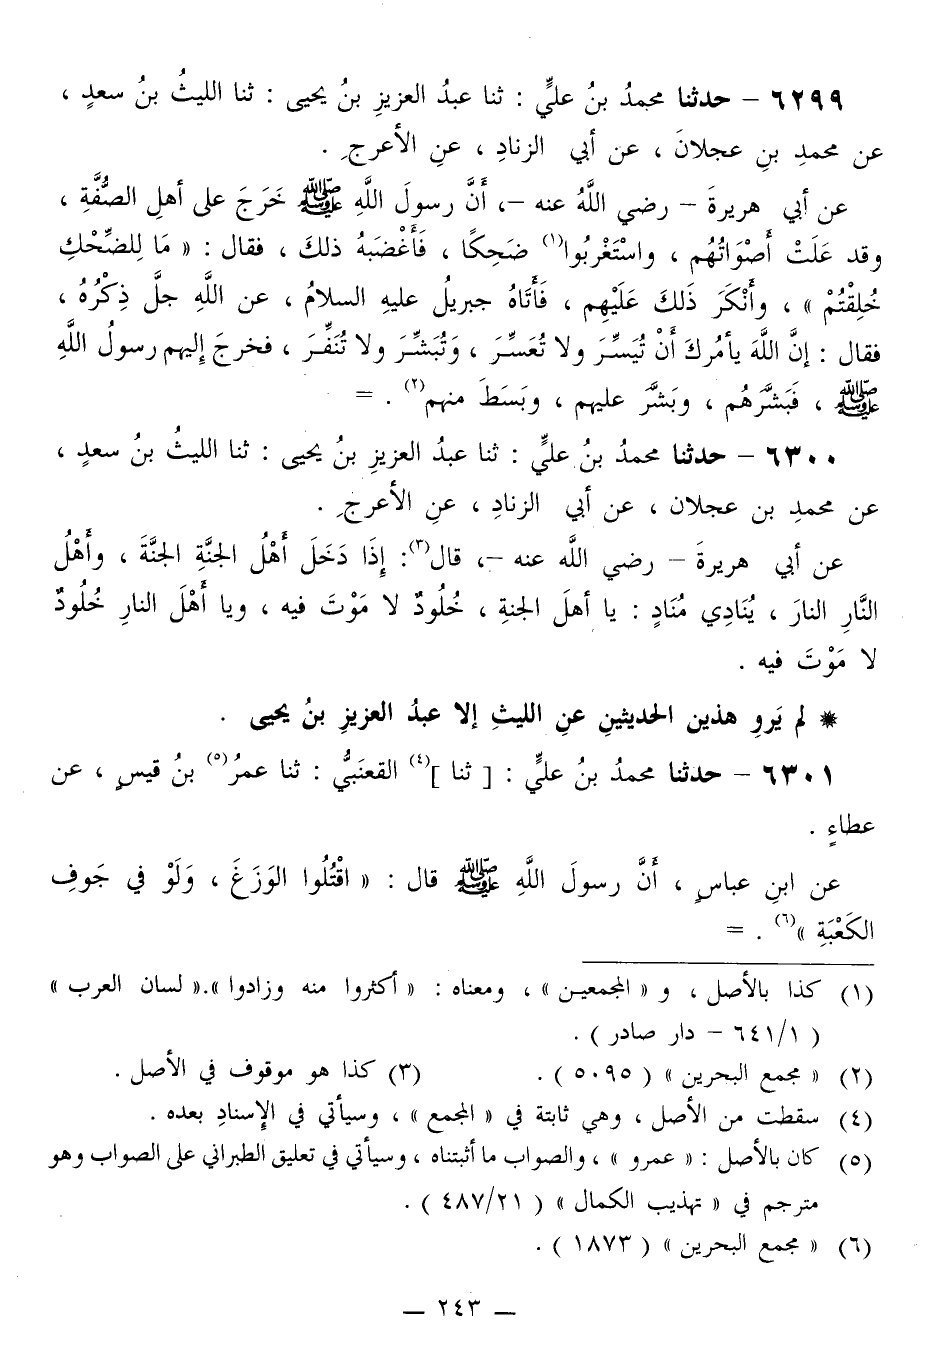 ٦٢٩٩ – حدثنا محمدُ بنُ عليٍّ : ثنا عبدُ العزيزِ بنُ يحيى : ثنا الليثُ بنُ سعدٍ ،
عن محمدِ بنِ عجلانَ ، عن أبي الزنادِ ، عنِ الأعرجِ .
عن أبي هريرةَ – رضي اللَّهُ عنه –، أَنَّ رسولَ اللَّهِ ﷺ خَرَجَ على أهلِ الصُّفَّةِ ،
وقد عَلَتْ أَصْوَاتُهُم ، واسْتَغْرِبُوا(١) ضَحِكًا ، فَأَغْضَبهُ ذلكَ ، فقال : « مَا لِلضِّحْكِ
خُلِقْتُمْ » ، وأَنْكَرَ ذَلكَ عَلَيْهِم ، فَأَتَاهُ جبريلُ عليهِ السلامُ ، عن اللَّهِ جلَّ ذِكْرُهُ ،
فقال : إنَّ اللَّهَ يأمُركَ أَنْ تُيَسِّرَ ولا تُعَسِّرَ ، وَتُبَشِّرَ ولا تُنَفِّرَ ، فخرجَ إليهم رسولُ اللَّهِ
ﷺ ، فَبَشَّرَهُم ، وبَشَّرَ عليهم ، وبَسَطَ منهم(٢) . =
٦٣٠٠ – حدثنا محمدُ بنُ عليٍّ : ثنا عبدُ العزيزِ بنُ يحيى : ثنا الليثُ بنُ سعدٍ ،
عن محمدِ بن عجلان ، عن أبي الزنادِ ، عنِ الأعرجِ .
عن أبي هريرةَ – رضي اللَّه عنه –، قال(٣): إِذَا دَخَلَ أَهْلُ الجنَّةِ الجنَّةَ ، وأَهْلُ
النَّارِ النارَ ، يُنَادِي مُنَادٍ : يا أهلَ الجنةِ ، خُلُودٌ لا مَوْتَ فيه ، ويا أَهْلَ النارِ خُلُودٌ
لا مَوْتَ فيه .
* لم يَروِ هذين الحديثينِ عنِ الليثِ إلا عبدُ العزيزِ بنُ يحيى .
٦٣٠١ – حدثنا محمدُ بنُ عليٍّ : [ ثنا ](٤) القعنَبيُّ : ثنا عمرُ(٥) بنُ قيسٍ ، عن
عطاءٍ .
عن ابنِ عباسٍ ، أَنَّ رسولَ اللَّهِ ﷺ قال : « اقْتُلُوا الوَزَغَ ، وَلَوْ في جَوفِ
الكَعْبَةِ »(٦) . =
(١) كذا بالأصل ، و « المجمعين » ، ومعناه : « أكثروا منه وزادوا ».« لسان العرب »
( ٦٤١/١ – دار صادر ) .
(٢) « مجمع البحرين » ( ٥٠٩٥ ) . (٣) كذا هو موقوف في الأصل .
(٤) سقطت من الأصل ، وهي ثابتة في « المجمع » ، وسيأتي في الإسنادِ بعده .
(٥) كان بالأصل : « عمرو » ، والصواب ما أثبتناه ، وسيأتي في تعليق الطبراني على الصواب وهو
مترجم في « تهذيب الكمال » ( ٤٨٧/٢١ ) .
(٦) « مجمع البحرين » ( ١٨٧٣ ) .
— ٢٤٣ —